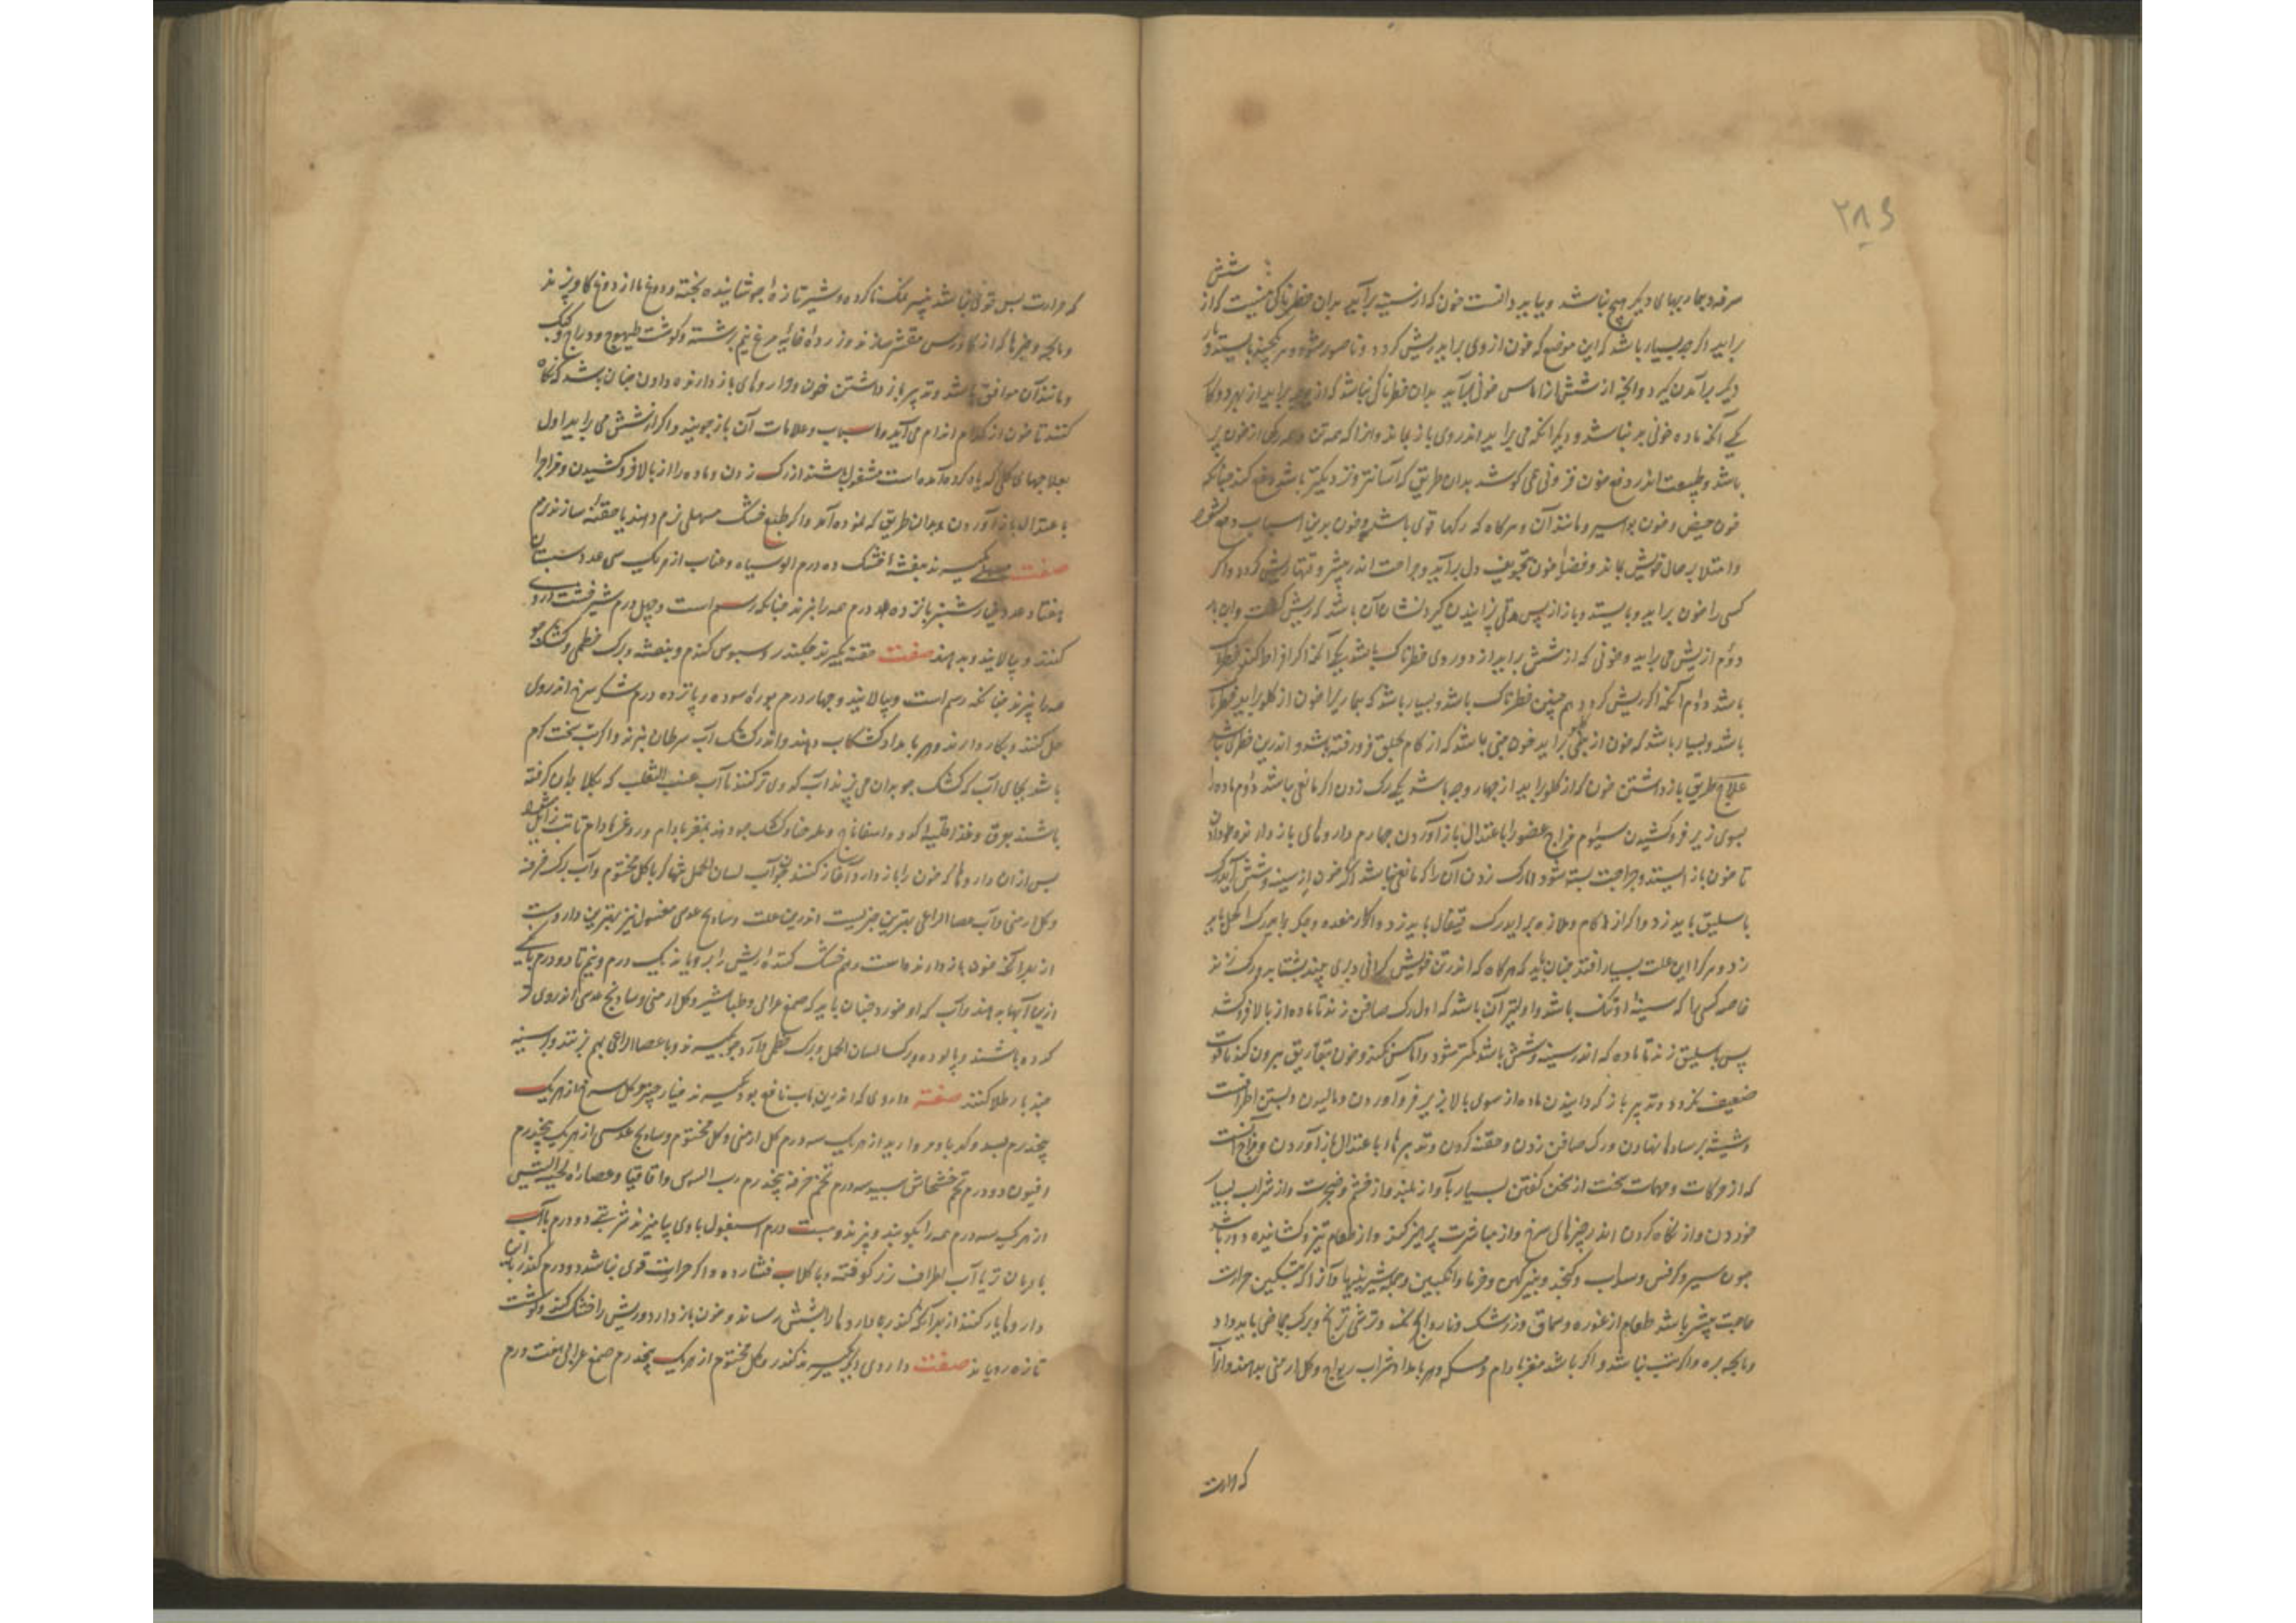 ۲۸۶
شش
سرفه و بیماریهای دیگر هیچ نباشد و بباید دانست خون که از سینه برآید بدان خطرناکی نیست که از
برآید اگرچه بسیار باشد که این موضع که خون از وی برآید ریش گردد و ناصور شود و هرگه بجنبد باز ایستد و باز
دیگر برآمدن گیرد و آنچه از شش از اماس خونی برآید بدان خطرناکی نباشد که از برآید از بهر دو کار
یکی آنکه ماده خونی بد نباشد و دیگر آنکه می برآید اندر وی باز نماند و هرآنکه همه تن و همه رگها از خون پر
باشد و طبیعت اندر دفع خون فزونی می کوشد بدان طریق که آسانتر و نزدیکتر باشد دفع کند چنانکه
خون حیض و خون بواسیر و مانند آن و هرگاه که رگها قوی باشد و خون بدین اسباب دفع نشود
و امتلا بر حال خویش بماند و فضله خون بتجویف دل برآید و جراحت اندر بیشتر وقتها ریش گردد و اگر
کسی را خون برآید و بایستد و باز از پس مدتی برآمدن گیرد نشان آن باشد که ریش گشت و این بار
دوم از ریش می برآید و خونی که از شش برآید از دو روی خطرناک باشد یکی آنکه اگر افراط کند خطرناک
باشد دوم آنکه اگر ریش گردد هم چنین خطرناک باشد و بسیار باشد که بیمار را خون از گلو برآید خطرناک
باشد و بسیار باشد که خون از برآید خون بینی باشد که از کام بحلق فرو رفته باشد و اندرین خطری نباشد
علاج طریق باز داشتن خون که از گلو برآید از چهار وجه باشد یکی رگ زدن اگر مانعی نباشد دوم ماده را
بسوی زیر فرو کشیدن سیوم مزاج عضو را باعتدال باز آوردن چهارم داروهای باز دارنده دادن
تا خون باز ایستد و جراحت بسته شود اما رگ زدن آن را که مانعی نباشد اگر خون از سینه و شش آید رگ
باسلیق باید زد و اگر از کام و ملازه برآید رگ قیفال باید زد و اگر از معده و جگر برآید رگ اکحل باید
زد و هرکرا این علت بسیار افتد چنان باید که هرگاه که اندر تن خویش گرانی و پری بیند بشتابد و رگ زند
خاصه کسیها که سینه او تنگ باشد و اولیتر آن باشد که اول رگ صافن زند تا ماده از بالا فرو کشد
پس باسلیق زند تا ماده که اندر سینه و شش باشد کمتر شود و خون بتفاریق بیرون کند تا قوت
ضعیف نگردد و تدبیر باز گردانیدن ماده از سوی بالا بزیر فرو آوردن و مالیدن و بستن اطرافست
و شیشه بر ساقها نهادن و رگ صافن زدن و حقنه کردن و تدبیرها باعتدال باز آوردن مزاج آنست
که از حرکات و مهمات سخت از سخن گفتن بسیار بآواز بلند و از خشم و ضجرت و از شراب بسیار
خوردن و از نگاه کردن اندر چیزهای سرخ و از مباشرت پرهیز کند و از طعام تیز و گشاینده دور باشد
چون سیر و کرفس و سداب و کنجد و پنیر کهن و خرما و انگبین و همه شیرینیها و آنرا که بتسکین حرارت
حاجت بیشتر باشد طعام از غوره و سماق و زرشک و ترشی ترنج و برگ حماض باید داد
و پاچه بره و اگر تب نباشد و اگر باشد مغز بادام و مسکه و هر بامداد شراب ریواج و گل ارمنی بدهند و آنرا
که حرارت
که حرارت بس قوی نباشد پنیر نمک ناکرده و شیر تازه جوشانیده پخته و دوغ ماز از دوغ گاو پزند
و پاچه و چیزها که از گاورس مقشر سازند و زرده خایه مرغ نیم برشته و گوشت طیهوج و دراج و کبک
و مانند آن موافق باشد و تدبیر باز داشتن خون و داروهای باز دارنده دادن چنان باشد که نگاه
کنند تا خون از کدام اندام می آید و اسباب و علامات آن باز جویند و اگر از شش می برآید اول
بعلاجهای کلی که یاد کرده آمده است مشغول باشند از رگ زدن و ماده را از بالا فرو کشیدن و مزاج را
باعتدال باز آوردن بدان طریق که نموده آمد و اگر طبع خشک مسهلی نرم دهند یا حقنه سازند نرم
صفت مسهلی بگیرند بنفشه خشک ده درم الو سیاه و عناب از هریک سی عدد سپستان
هفتاد عدد خیار شنبر پانزده درم همه را بپزند چنانکه رسم است و چهل درم شیرخشت در وی
کنند و بپالایند و بدهند صفت حقنه بگیرند چکندر و سبوس گندم و بنفشه و برگ خطمی و کشک جو
همه را بپزند چنانکه رسم است و بپالایند و چهار درم بوره سوده و پانزده درم شکر سرخ اندر وی
حل کنند و بکار دارند و هر بامداد کشکاب دهند و اندر کشک آب سرطان بپزند و اگر تب سخت گرم
باشد بجای آب که کشک جو بدان می پزند آب کدوی تر کنند تا آب عنب الثعلب که بگلاب بدان گرفته
باشند بوق و غذا قلیه کدو و اسفاناخ و کشک جو دهند بمغز بادام و روغن بادام تا تب زایل شود
پس از آن داروها که خون را باز دارد آغاز کنند چون آب لسان الحمل تنها که با گل مختوم و آب برگ خرفه
و گل ارمنی و آب عصا الراعی بهترین چیزیست اندرین علت و ساذج عدسی مغسول نیز بهترین داروست
از بهر آنکه خون باز دارنده است و هم خشک کننده و ریش را برویاند یک درم و نیم تا دو درم با یکی
ازین آبها بدهند و آب که او خورد چنان باید که صمغ عربی و طباشیر و گل ارمنی و ساذج عدسی اندر وی
کرده باشند و پالوده و برگ لسان الحمل و برگ خطمی و آرد جو بگیرند و با عصا الراعی بهم بزنند و بر سینه
چند بار طلا کنند صفت داروی که اندرین باب نافع بود بگیرند گل سرخ از هریک
پنجدرم بسد و کهربا و مروارید از هریک سه درم گل ارمنی و گل مختوم و ساذج عدسی از هریک پنجدرم
افیون دو درم تخم خشخاش سپید سه درم تخم خرفه پنجدرم رب السوس و اقاقیا و عصاره لحیة التیس
از هریک سه درم همه را بکوبند و بپزند و بیست درم اسبغول با وی بیامیزند شربتی دو درم با آب
بارمان تر یا آب اطراف رز کوفته و با گلاب فشارده و اگر حرارت قوی نباشد دو درم کندر با این
داروها یار کنند از بهر آنکه کندر داروها را بشش رساند و خون باز دارد و ریش را خشک کند و گوشت
تازه رویاند صفت داروی دیگر بگیرند کندر و گل مختوم از هریک پنجدرم صمغ عربی هفت درم